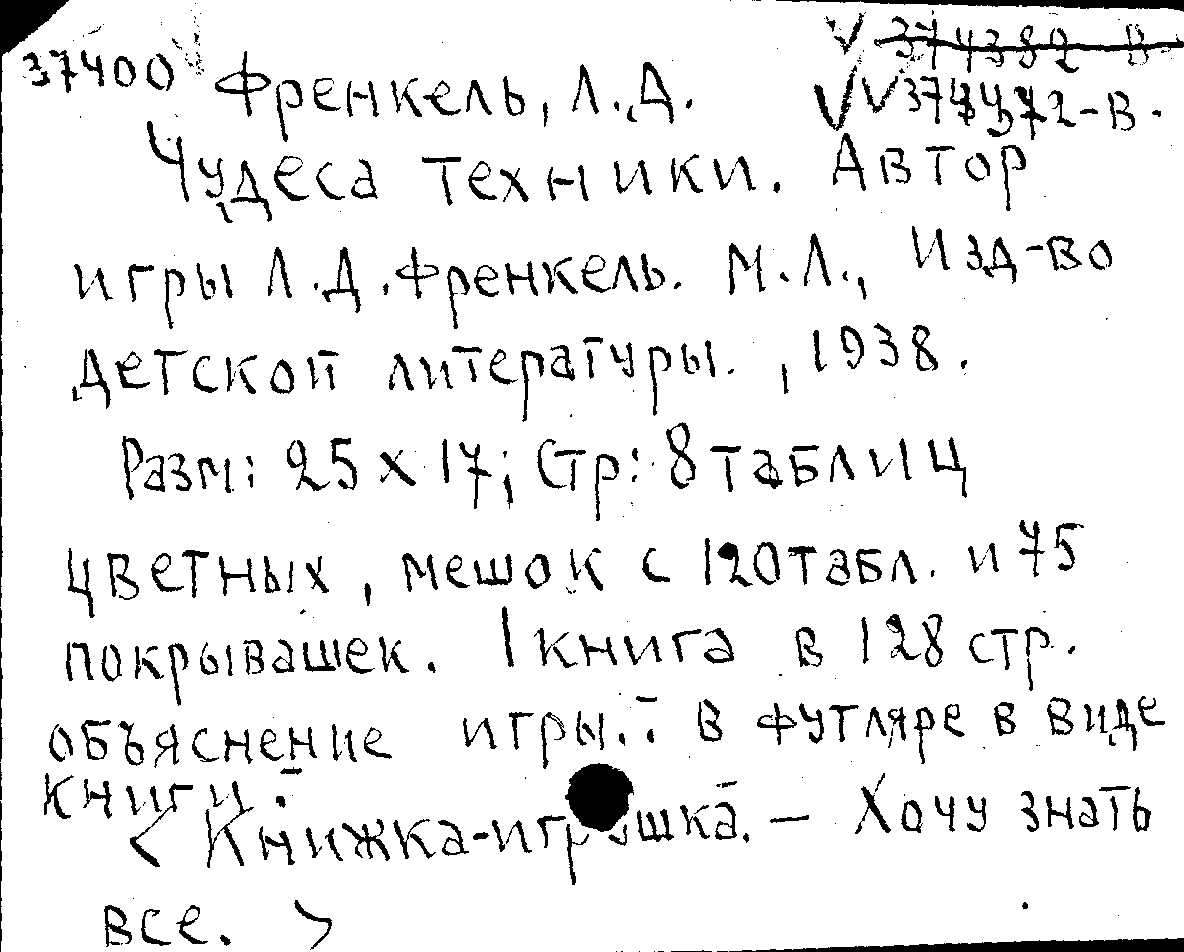 37400
374382 В
Френкель, Л.Д.
Чудеса техники. Автор
игры Л.Д.Френкель. М.Л., Изд-во
детской литературы., 1938.
Разм: 25 х 17; Стр: 8 таблиц
цветных, мешок с 120 табл. и 75
покрывашек. 1 книга в 128 стр.
объяснение игры. В футляре в виде
книги.
< Книжка-игрушка. — Хочу знать
все. >